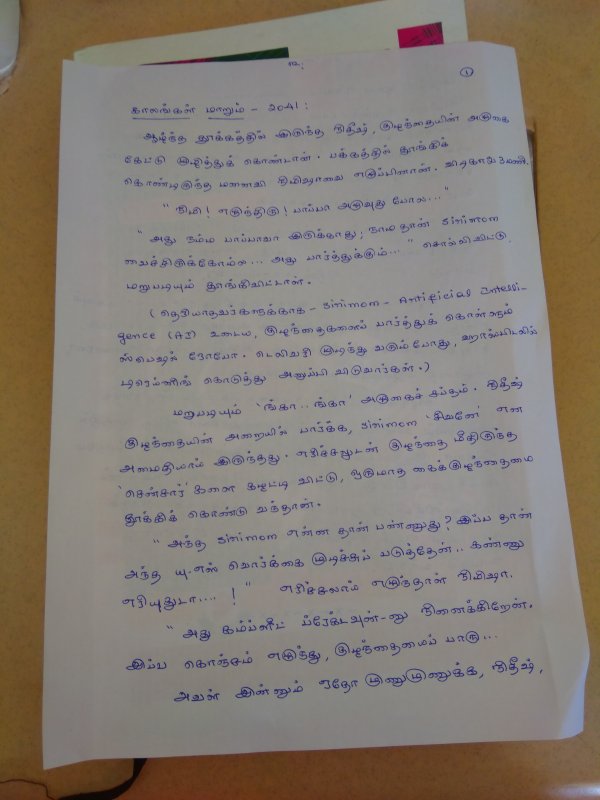 உ
1
காலங்கள் மாறும் - 2041:
ஆழ்ந்த தூக்கத்தில் இருந்த நிதீஷ், குழந்தையின் அழுகை
கேட்டு முழித்துக் கொண்டான். பக்கத்தில் தூங்கிக்
கொண்டிருந்த மனைவி நிமிஷாவை எழுப்பினான். விடிகாலை 3 மணி.
"நிமி! எழுந்திரு! பாப்பா அழுவுது போல..."
"அது நம்ம பாப்பாவா இருக்காது; நாமதான்
வைச்சிருக்கோம்ல... அது பார்த்துக்கும்..." சொல்லிவிட்டு
மறுபடியும் தூங்கிவிட்டாள்.
(தெரியாதவர்களுக்காக - - Artificial Intelli-
gence (AI) உடைய, குழந்தைகளைப் பார்த்துக் கொள்ளும்
ஸ்பெஷல் ரோபோ. டெலிவரி முடிந்து வரும்போது, ஹாஸ்பிடலில்
டிரெய்னிங் கொடுத்து அனுப்பி விடுவார்கள்.)
மறுபடியும் 'ங்கா..ங்கா' அழுகைச் சப்தம். நிதீஷ்
குழந்தையின் அறையில் பார்க்க, 'சிவனே' என
அமைதியாய் இருந்தது. எரிச்சலுடன் குழந்தை மீதிருந்த
'சென்சார்'களை கழட்டி விட்டு, ஒருமாத கைக்குழந்தையை
தூக்கிக் கொண்டு வந்தான்.
"அந்த என்ன தான் பண்ணுது? இப்ப தான்
அந்த யு-எஸ் வொர்க்கை முடிச்சுப் படுத்தேன்... கண்ணு
எரியுதுடா....!" எரிச்சலாய் எழுந்தாள் நிமிஷா.
"அது கம்ப்ளீட் ப்ரேக்டவுன்-னு நினைக்கிறேன்.
இப்ப கொஞ்சம் எழுந்து, குழந்தையைப் பாரு...
அவள் இன்னும் ஏதோ முணுமுணுக்க, நிதீஷ்,